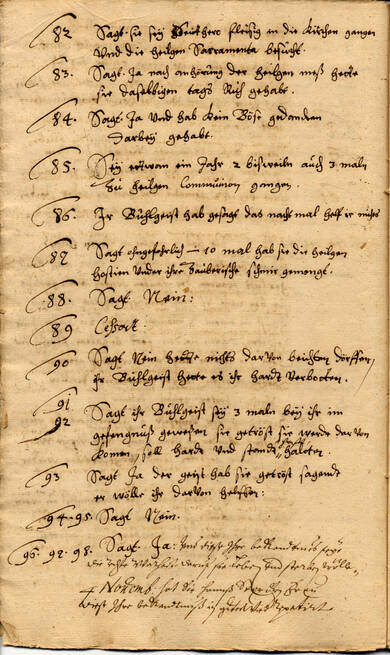 82 Sagt sie sey Seithero fleisig in die Kirchen gangen
Und die heilgen Sacramenta besucht.
83. Sagt. Ja nach anhörung der heilgen meß hette
sie daselbigen tags Ruh gehabt.
84. Sagt. Ja und hab kein Böse gedancken
darbey gehabt.
85. Sey etwan ein Jahr 2 bisweiln auch 3 maln
zu heilgen Communion gangen.
86. Ir Buhlgeist hab gesagt das nachtmal helf ir nichts
87 Sagt ohngefehrlich 10 mal hab sie die heilgen
hostien under ihre Zauberische schmir gemengt.
88. Sagt Nein:
89 Cessat.
90 Sagt Nein hette nichts darvon beichten dörffen,
ihr Buhlgeist hette es ihr hardt verbotten.
91 Sagt ihr Buhlgeist sey 3 maln bey ihr im
92 gefengnuß gewesen sie getröst sie werde darvon
komen, soll hardt und standthafft halten.
93 Sagt Ja der geist hab sie getröst sagendt
er wölle ihr darvon helffen:
94. 95. Sagt Nein.
96. 97. 98. Sagt. Ja: Und diese ihre bekandtnus seye
die Warheit darauf sie leben und sterben wölle
Novemb. hat die
diese ihre bekandtnuß